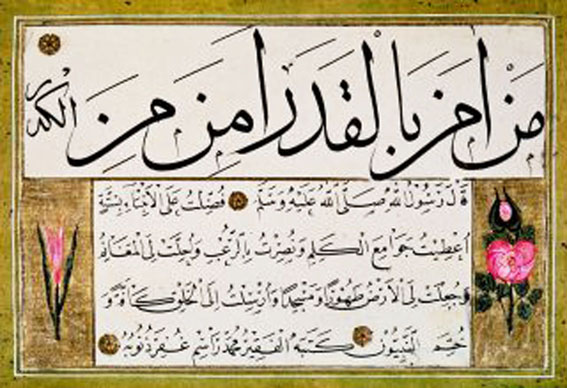 من امن بالقدر امن من الكدر
قال رسول الله صلى الله عليه وسلم فضلت على الأنبياء بستة
اعطيت جوامع الكلم ونصرت بالرعب واحلت لى المغانم
وجعلت لى الأرض طهورا ومسجدا وارسلت الى الخلق كافة و
ختم النبيون كتبه الفقير محمد راسم غفر ذنوبه